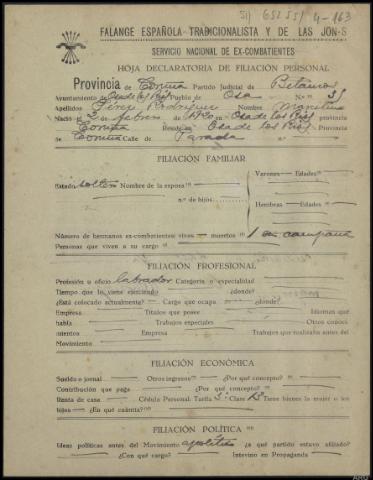 51) 65255/4-163
FALANGE ESPAÑOLA TRADICIONALISTA Y DE LAS JON-S
SERVICIO NACIONAL DE EX-COMBATIENTES
HOJA DECLARATORIA DE FILIACIÓN PERSONAL
Provincia de Coruña Partido Judicial de Betanzos
Ayuntamiento de Oza de los Ríos Pueblo de Oza N.º 31
Apellidos Pérez Rodríguez Nombre
Nació el 2 de febrero de 1920 en Oza de los Ríos provincia
Coruña Reside en Oza de los Ríos Provincia
de Coruña Calle de Parada
FILIACIÓN FAMILIAR
Varones Edades
Estado soltero Nombre de la esposa
n.º de hijos
Hembras Edades
Número de hermanos ex-combatientes: vivos muertos 1 en campaña
Personas que viven a su cargo
FILIACIÓN PROFESIONAL
Profesión u oficio labrador Categoría o especialidad
Tiempo que lo viene ejerciendo ¿dónde?
¿Está colocado actualmente? Cargo que ocupa ¿dónde?
Empresa Títulos que posee Idiomas que
habla Trabajos especiales Otros conoci-
mientos Empresa Trabajos que realizaba antes del
Movimiento
FILIACIÓN ECONÓMICA
Sueldo o jornal Otros ingresos ¿Por qué concepto?
Contribución que paga ¿Por qué concepto?
Renta de casa Cédula Personal. Tarifa 3ª Clase 13 Tiene bienes la mujer o los
hijos ¿En qué cuantía?
FILIACIÓN POLÍTICA
Ideas políticas antes del Movimiento apolítico ¿a qué partido estuvo afiliado?
¿Con qué cargo? Intervino en Propaganda